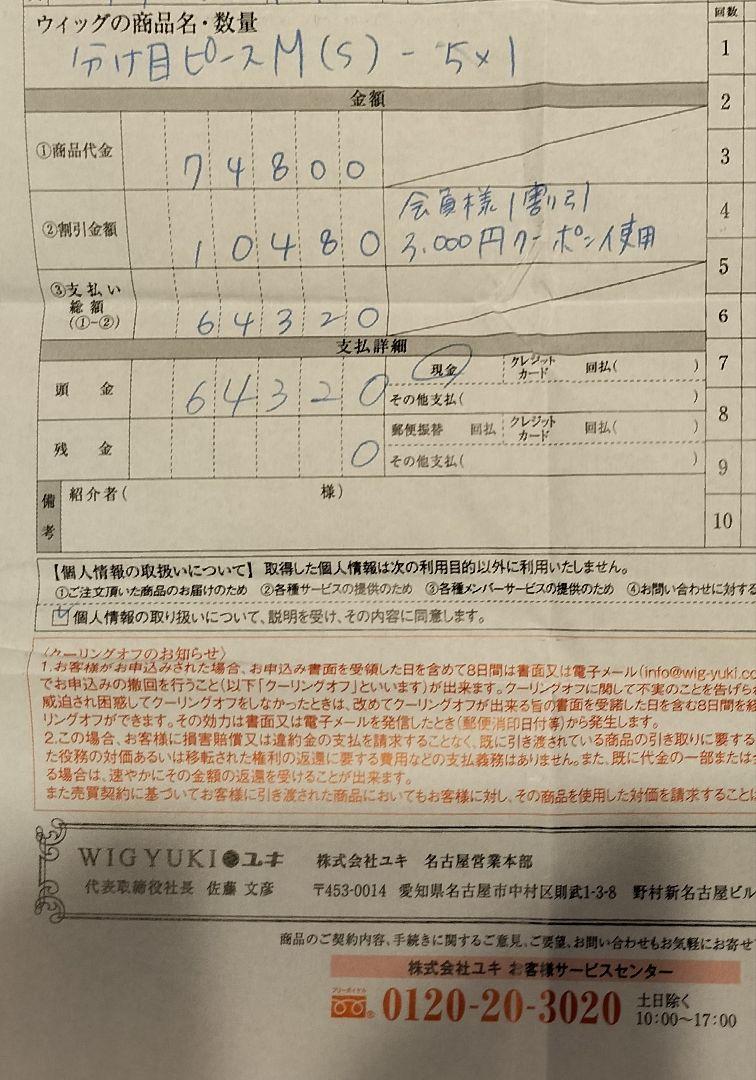 ウィッグの商品名・数量
分け目ピースM(S)-5×1
金額
①商品代金 74800
②割引金額 10480
会員様1割引
3,000円クーポン使用
③支払い
総額
(①-②)
64320
支払詳細
頭金 64320
現金 クレジットカード 回払( )
その他支払( )
残金 0
郵便振替 回払 クレジットカード 回払( )
その他支払( )
備考
紹介者( 様)
回数
1
2
3
4
5
6
7
8
9
10
【個人情報の取扱いについて】 取得した個人情報は次の利用目的以外に利用いたしません。
①ご注文頂いた商品のお届けのため ②各種サービスの提供のため ③各種メンバーサービスの提供のため ④お問い合わせに対する
個人情報の取り扱いについて、説明を受け、その内容に同意します。
〈クーリングオフのお知らせ〉
1.お客様がお申込みされた場合、お申込み書面を受領した日を含めて8日間は書面又は電子メール(info@wig-yuki.co
でお申込みの撤回を行うこと(以下「クーリングオフ」といいます)が出来ます。クーリングオフに関して不実のことを告げら
威迫され困惑してクーリングオフをしなかったときは、改めてクーリングオフが出来る旨の書面を受領した日を含む8日間を経
リングオフができます。その効力は書面又は電子メールを発信したとき(郵便消印日付等)から発生します。
2.この場合、お客様に損害賠償又は違約金の支払を請求することなく、既に引き渡されている商品の引き取りに要する
た役務の対価あるいは移転された権利の返還に要する費用などの支払義務はありません。また、既に代金の一部または
る場合は、速やかにその金額の返還を受けることが出来ます。
また売買契約に基づいてお客様に引き渡された商品においてもお客様に対し、その商品を使用した対価を請求することは
WIG YUKI ユキ 株式会社ユキ 名古屋営業本部
代表取締役社長 佐藤 文彦 〒453-0014 愛知県名古屋市中村区則武1-3-8 野村新名古屋ビル
商品のご契約内容、手続きに関するご意見、ご要望、お問い合わせもお気軽にお寄せ
株式会社ユキ お客様サービスセンター
フリーダイヤル
0120-20-3020
土日除く
10:00～17:00